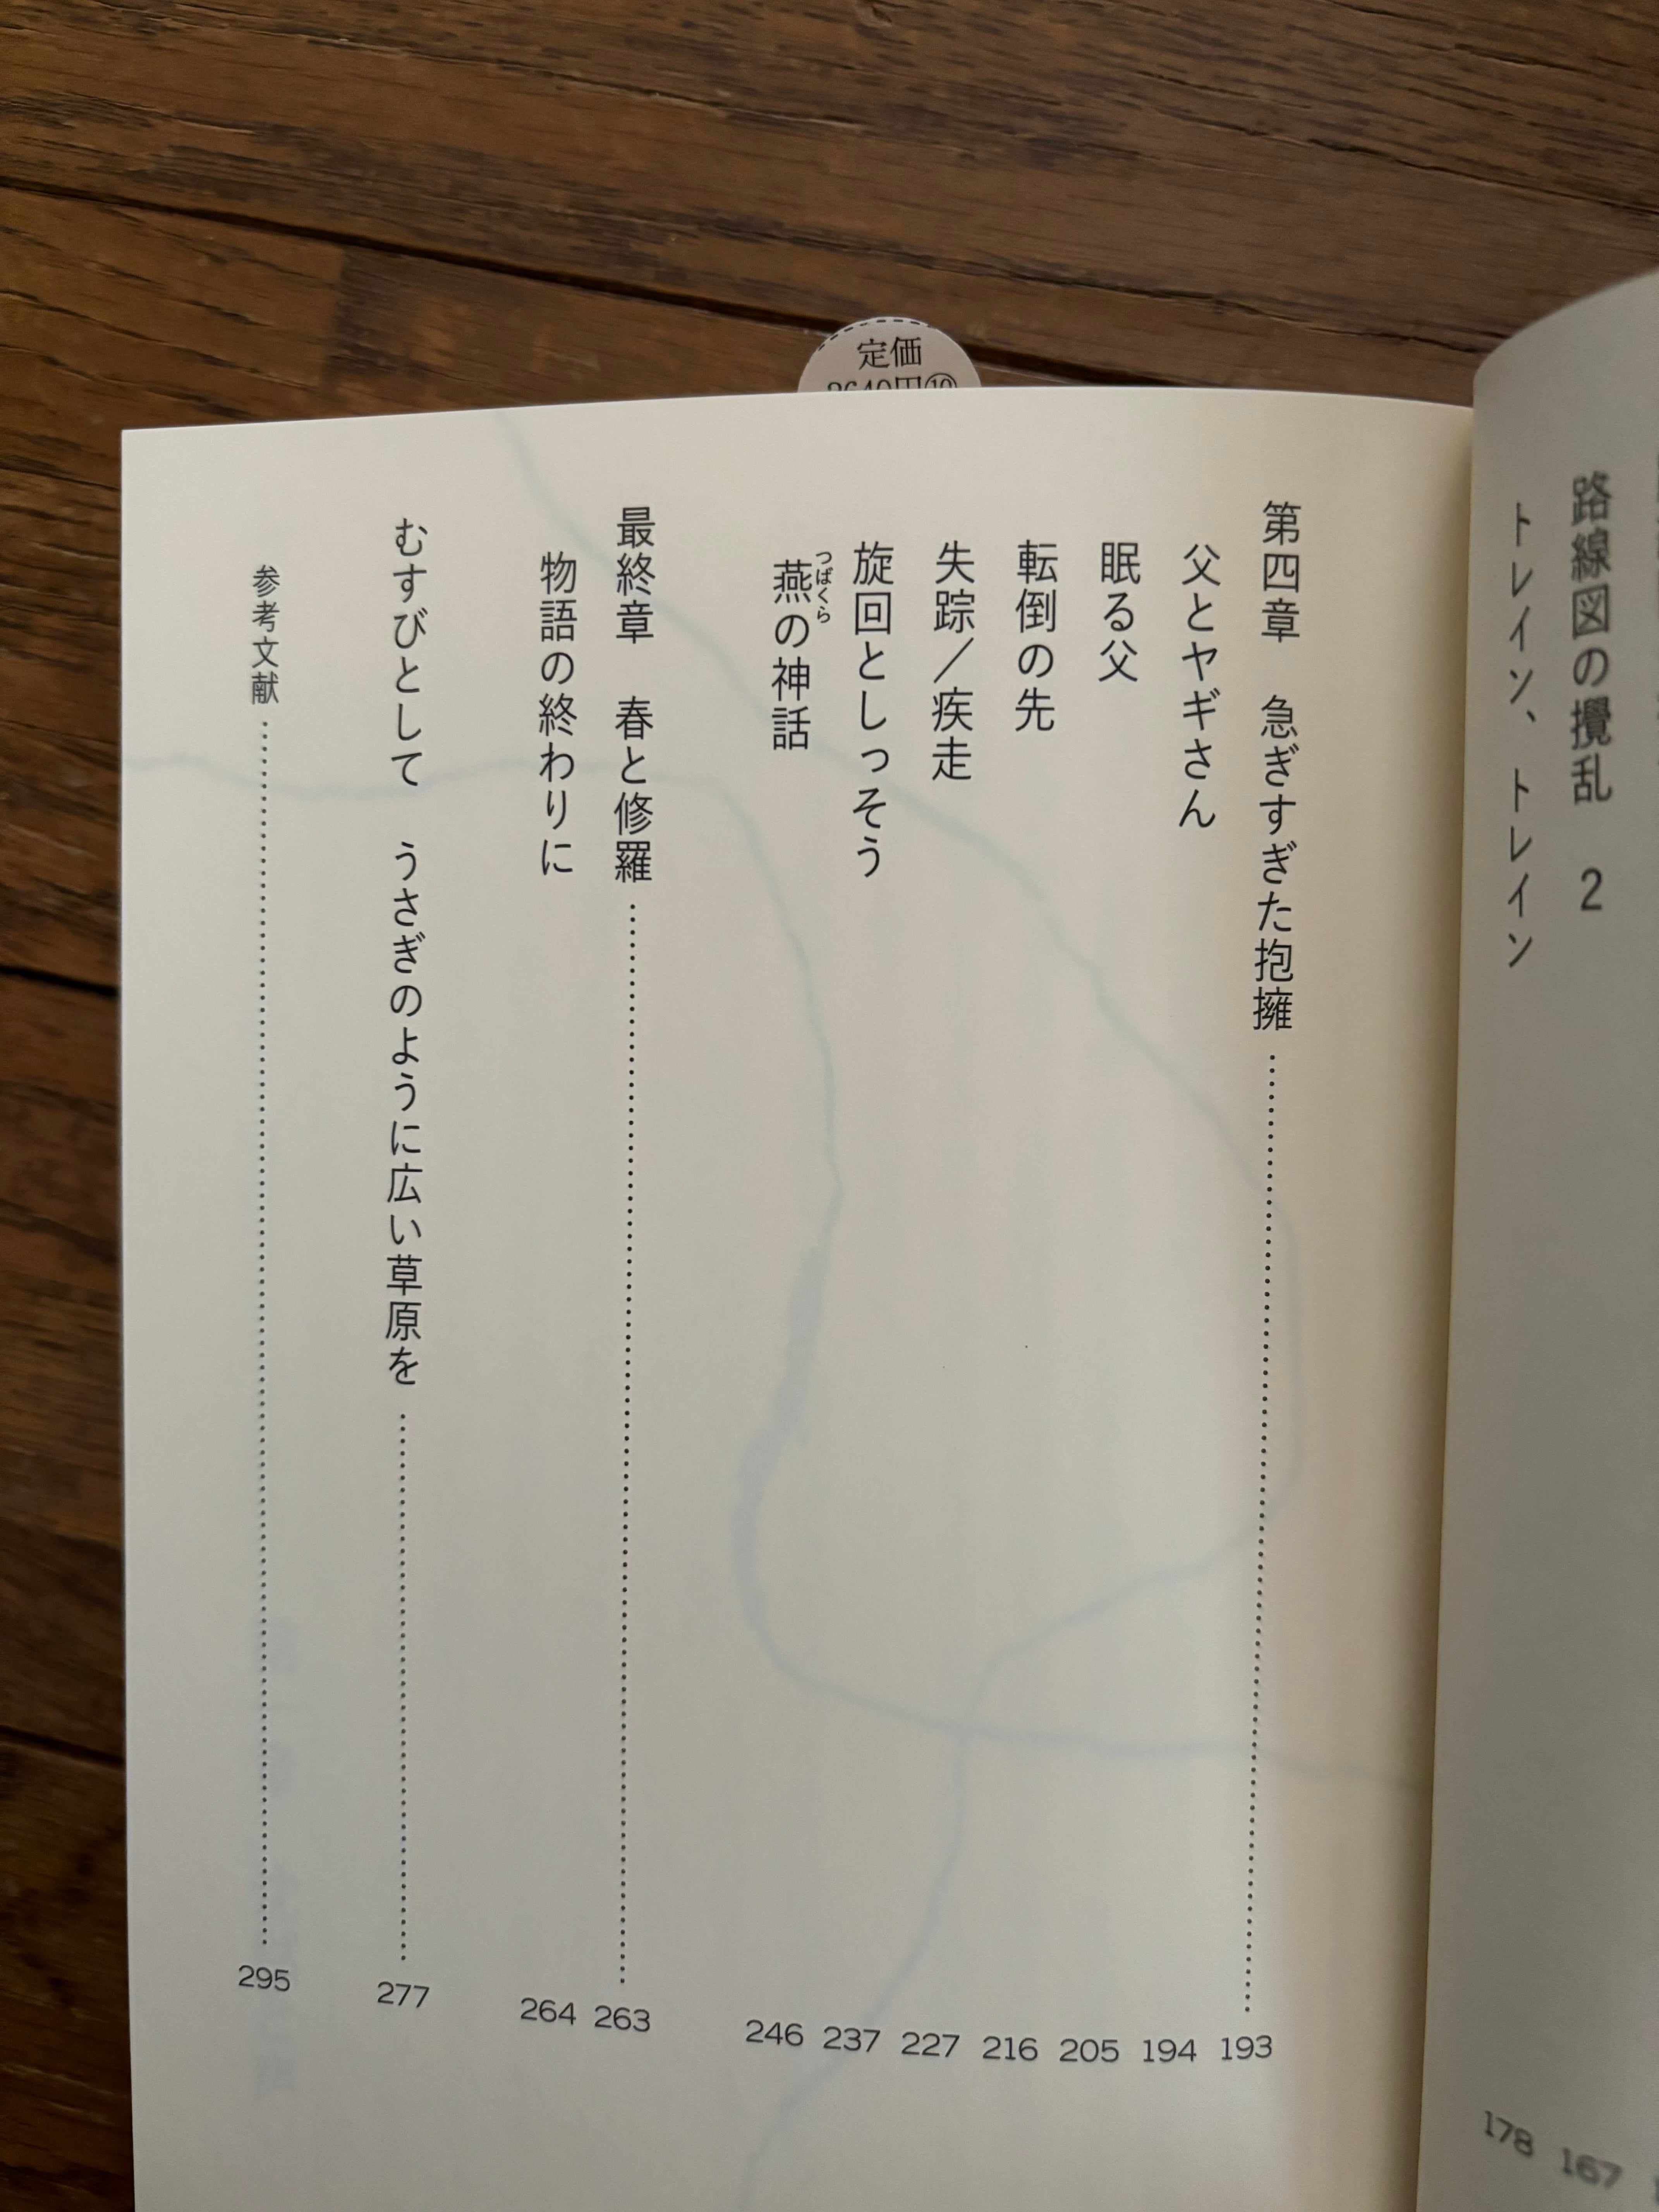 路線図の攪乱 2
167
トレイン、トレイン
178
定価
2640円⑩
第四章 急ぎすぎた抱擁 193
父とヤギさん 194
眠る父 205
転倒の先 216
失踪／疾走 227
旋回としっそう 237
つばくら
燕の神話 246
最終章 春と修羅 263
物語の終わりに 264
むすびとして うさぎのように広い草原を 277
参考文献 295